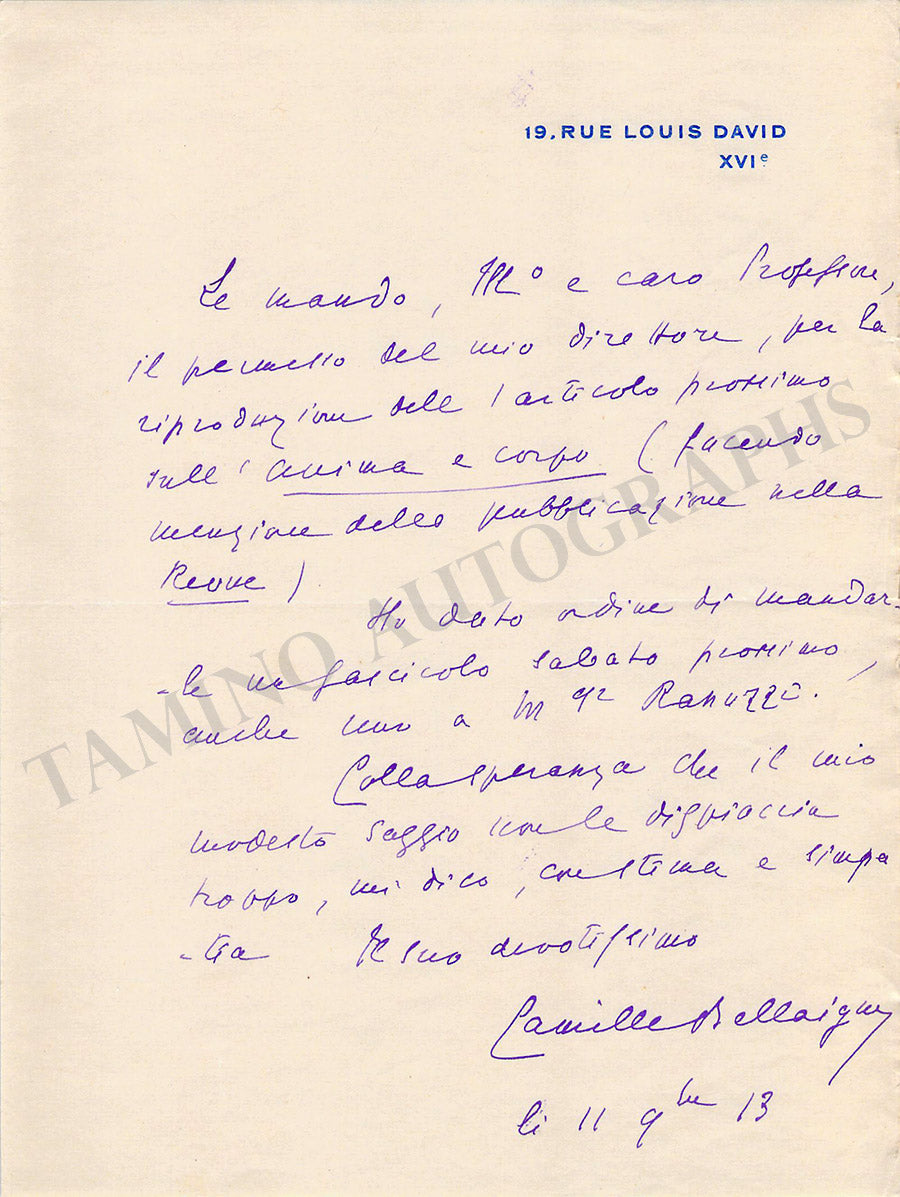 19. RUE LOUIS DAVID
XVIe
Le mando, Ill^o e caro Professore,
il permesso del mio direttore, per la
riproduzione dell'articolo prossimo
sull'Anima e corpo (facendo
menzione della pubblicazione nella
Revue)
Ho dato ordine di mandar-
-le un fascicolo sabato prossimo,
anche uno a Mgr Ranuzzi.
Colla speranza che il mio
modesto saggio non le dispiaccia
troppo, mi dico, con stima e simpa
-tia Il suo devotissimo
Camille Bellaigue
li 11 9bre 13
TAMINO AUTOGRAPHS